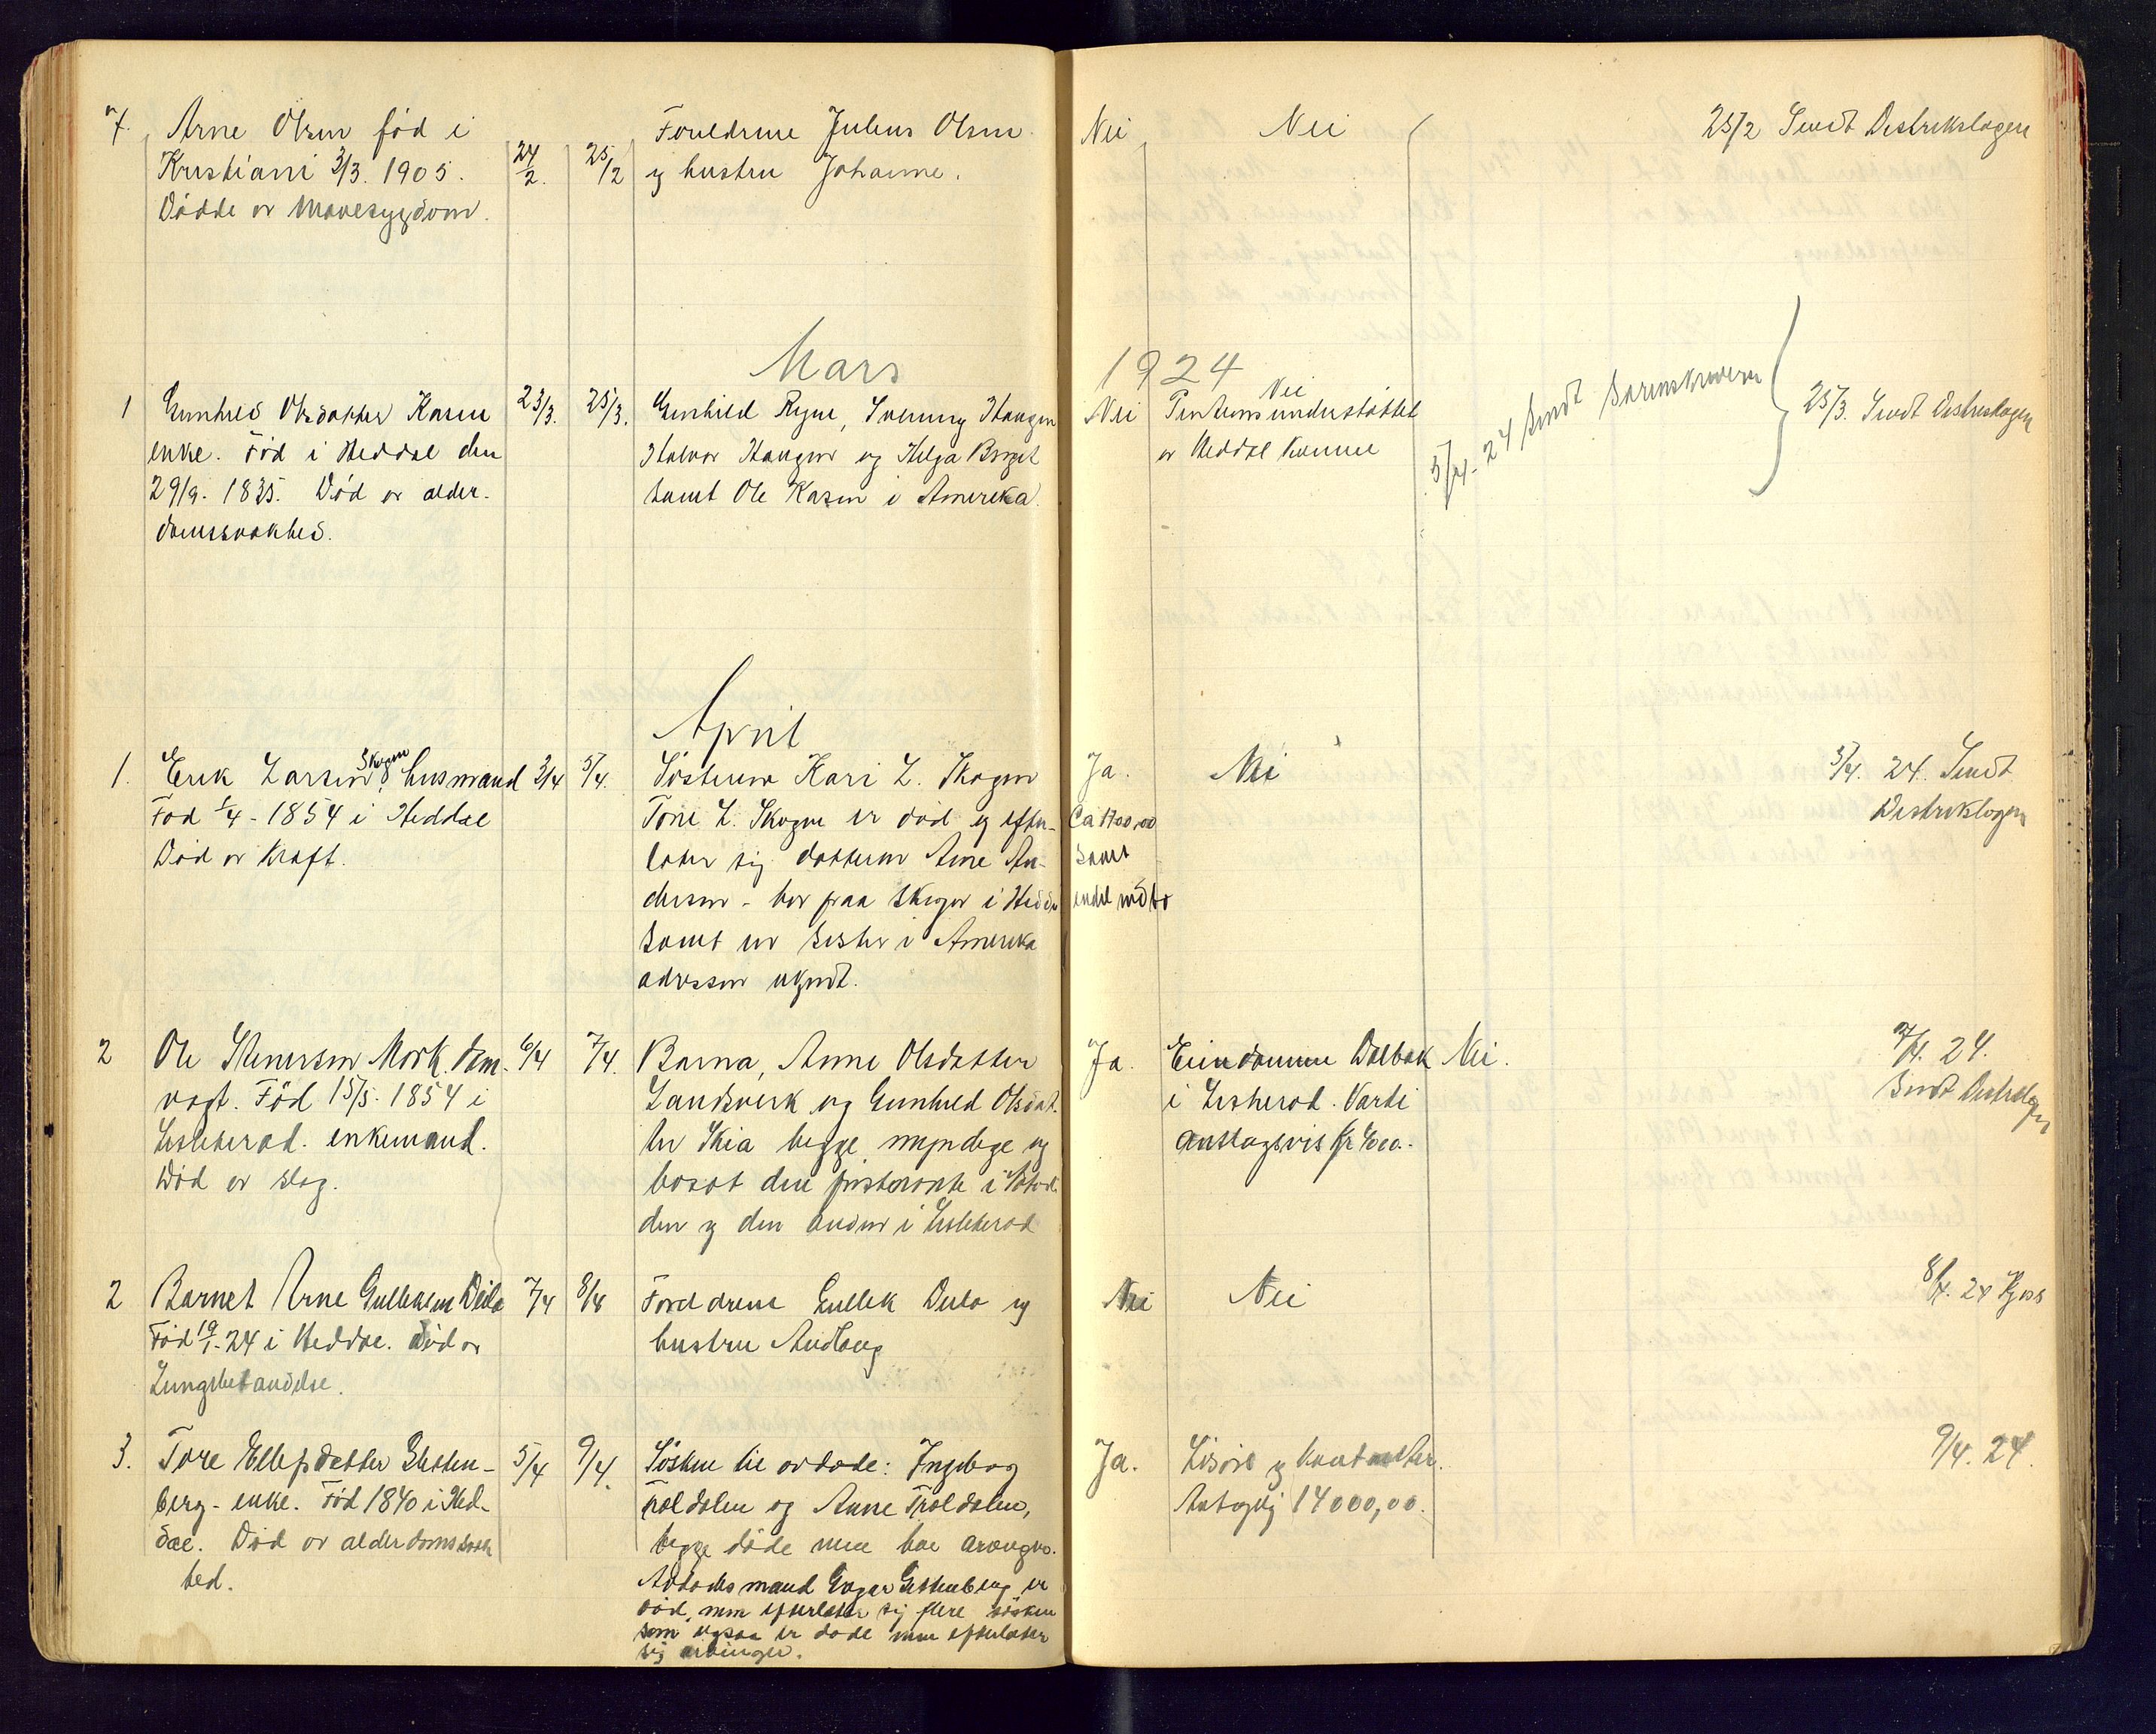 7. Arne Olsen föd i
Kristiani 3/3. 1905.
Dödde av Mavesygdom.
24/2. 25/2
Foreldrene Julius Olsen
og hustru Johanne.
Nei Nei
25/2 Sendt Distrikslægen
Mars
1924
1 Gunhild Olsdatter Kasin
enke. Föd i Heddal den
29/9. 1835. Död av alder-
domssvakhed.
23/3. 25/3.
Gunhild Rygene, Haugen
Halvor Haugen og Helga Borget
samt Ole Kasin i Amerika.
Nei
Nei
understöttet
av Heddal Kommune
5/4. 24 Sendt Sorenskriveren
25/3. Sendt Distrikslægen
April
1. Erik Larsen Skogen, husmand
Föd 1/4 - 1854 i Heddal
Död av Kræft.
3/4 5/4.
Sösteren Kari L. Skogen
Tone L. Skogen er död og efter-
later sig datteren Anne An-
dersen - bor paa Skogen i Heddal
Samt en söster i Amerika
adressen ukjendt.
Ja.
Ca 1700,00
Samt
endel indbo
Nei
5/4. 24. Sendt
Distrikslægen
2 Ole Stenersen Mork. dam-
vagt. Föd 15/5. 1854 i
Lilleherad. enkemand.
Död av slag.
6/4 7/4.
Barna, Anne Olsdatter
Landsverk og Gunhild Olsdat-
ter Skia begge myndige og
bosat den förstnævnte i Notod-
den og den anden i Lilleherad
Ja.
Eiendomme Dalbak
i Lilleherad. Værdi
anslagsvis kr 4000.-
Nei.
7/4. 24.
Sendt Distrikslægen
2 Barnet Arne Gulleksen
Föd 19/1-24 i Heddal. död av
Lungebetændelse.
7/4 8/4
Foreldrene Gullek og
hustru Audlaug
Nei Nei
8/4. 24
3. Tore Ellefsdatter Glitten-
berg - enke. Föd 1840 i Hed-
dal. Död av alderdomssvak
hed.
5/4 9/4.
Sösken til avdöde: Ingeborg
Troldalen og Anne Troldalen,
begge döde men har arvinger.
Avdödes mand Gregar Glittenberg er
död, men efterlater sig flere sösken
som ogsaa er döde men efterlater
sig arvinger.
Ja.
Lösöre og kontanter.
Antagelig 14000,00.
9/4. 24.